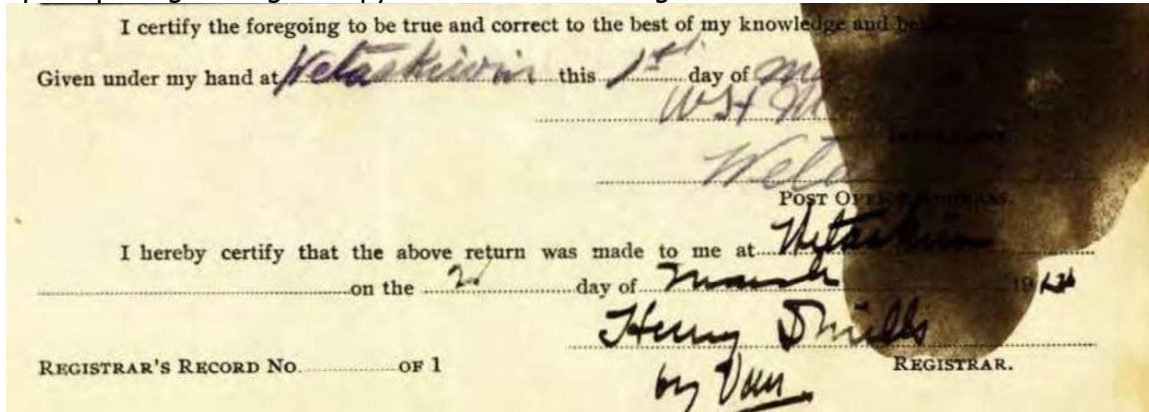 I certify the foregoing to be true and correct to the best of my knowledge and be
Given under my hand at Wetaskiwin this 1st day of
W
Weta
POST OFFICE ADDRESS.
I hereby certify that the above return was made to me at Wetaskiwin
on the 2 day of March 19
Henry
REGISTRAR'S RECORD NO. OF 1 REGISTRAR.
by